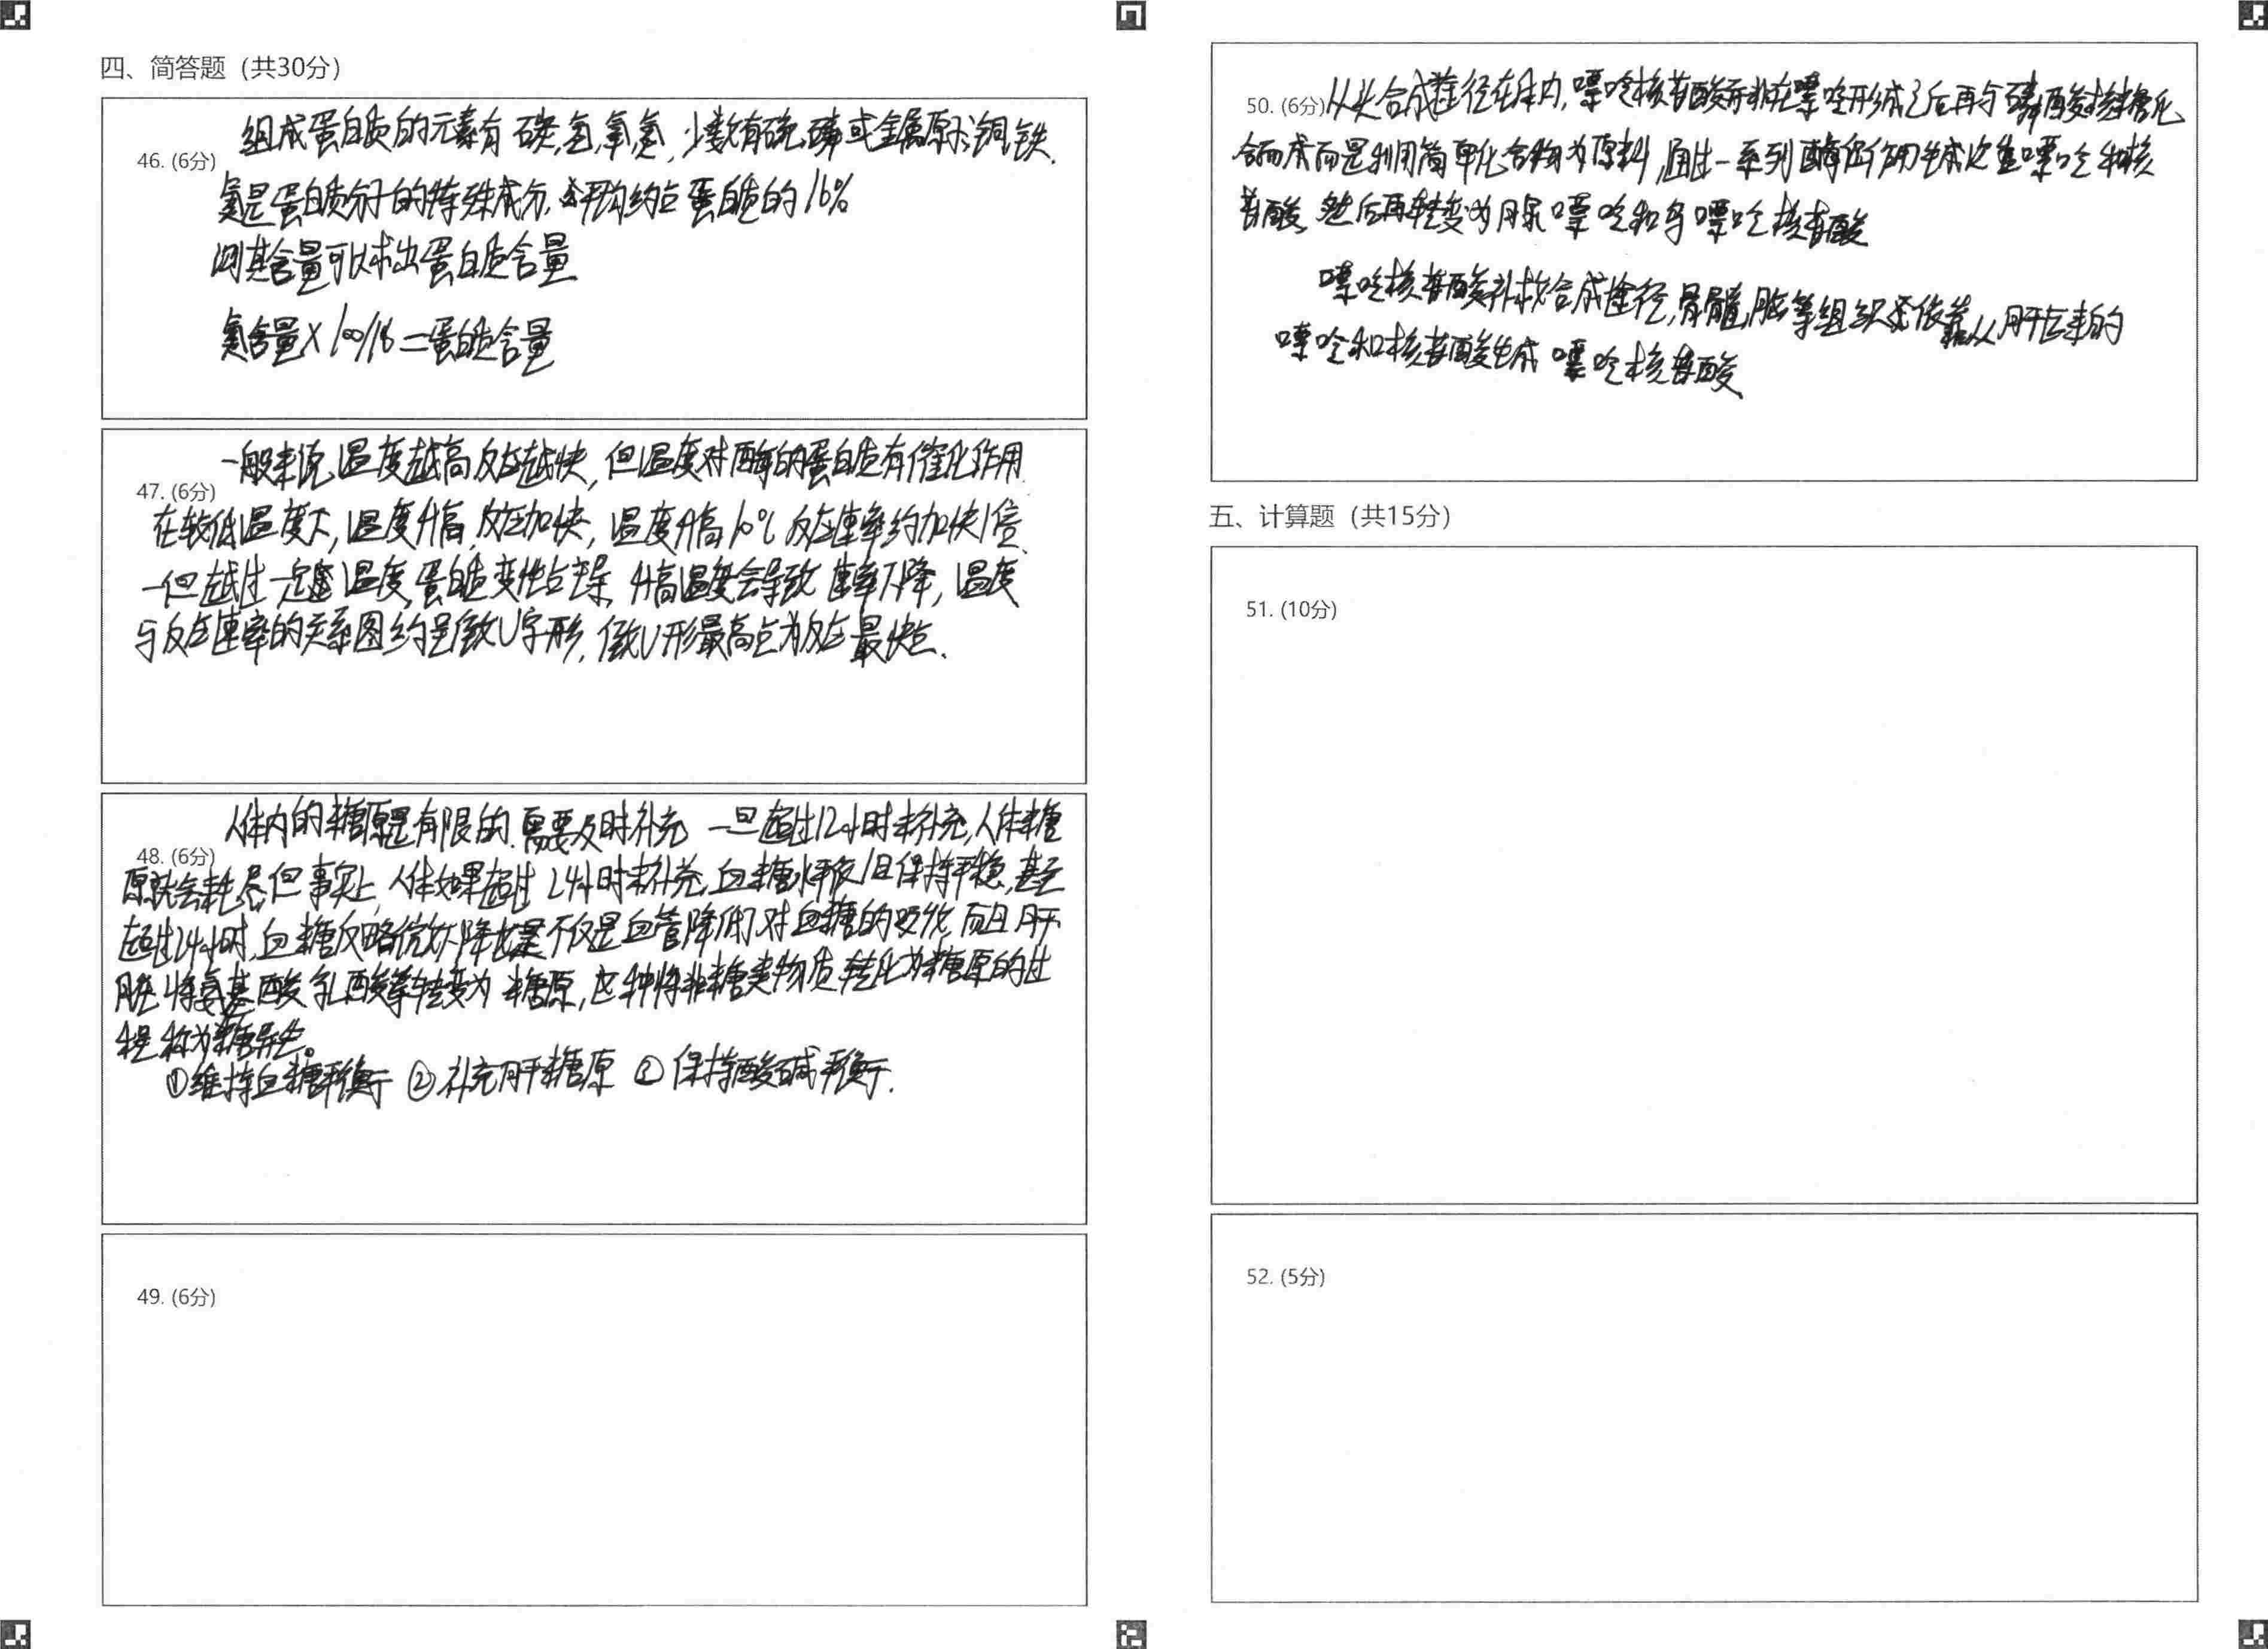 四、简答题（共30分）
46. (6分)
组成蛋白质的元素有碳,氢,氧,氮,少数有硫磷或金属原子铜铁.
氮是蛋白质分子的特殊成分,平均约占蛋白质的16%
测其含量可以求出蛋白质含量
氮含量×100/16=蛋白质含量
47. (6分)
一般来说,温度越高反应越快,但温度对酶的蛋白质有催化作用
在较低温度下,温度升高,反应加快,温度升高10℃反应速率约加快1倍、
一但越过一定温度,蛋白质变性占主导,升高温度会导致速率下降,温度
与反应速率的关系图约呈倒U字形,倒U形最高点为反应最快点.
48. (6分)
人体内的糖原是有限的.需要及时补充 一旦超过12小时未补充,人体糖
原就会耗尽但事实上,人体如果超过24小时未补充,血糖水平依旧保持平稳,甚至
超过24小时,血糖仅略微下降 不仅是血管降低了对血糖的吸收,而且肝
脏将氨基酸乳酸等转变为糖原,这种将非糖类物质转化为糖原的过
程称为糖异生。
①维持血糖平衡 ②补充肝糖原 ③保持酸碱平衡.
49. (6分)
50. (6分)
从头合成途径在体内,嘌呤核苷酸并非在嘌呤形成之后再与磷酸核糖化
合而成而是利用简单化合物为原料,通过一系列酶促作用生成次黄嘌呤和核
苷酸,然后再转变为尿嘌呤和鸟嘌呤核苷酸
嘌呤核苷酸补救合成途径,骨髓,脑等组织 依靠从肝运来的
嘌呤和核苷酸生成嘌呤核苷酸
五、计算题（共15分）
51. (10分)
52. (5分)